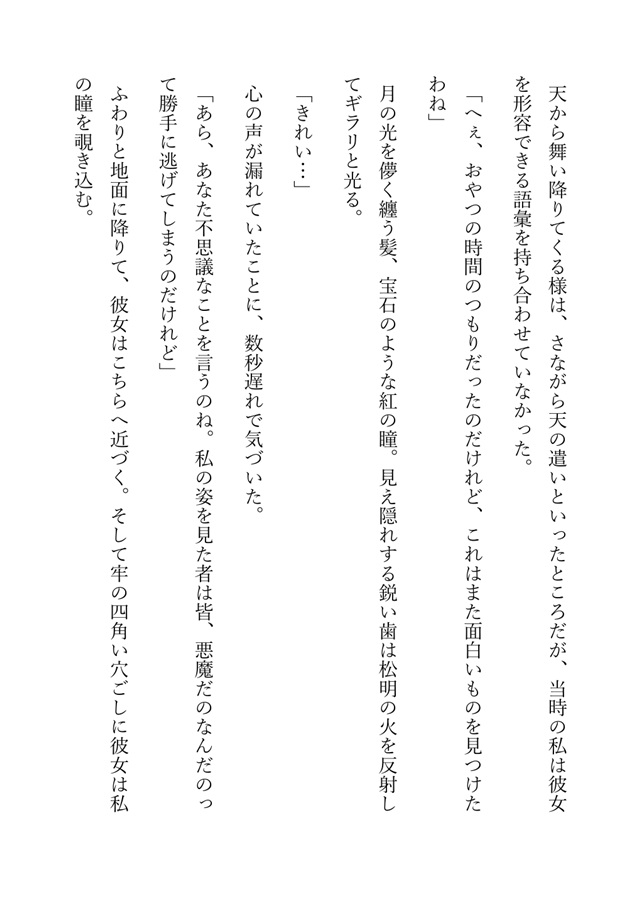 天から舞い降りてくる様は、さながら天の遣いといったところだが、当時の私は彼女
を形容できる語彙を持ち合わせていなかった。
「へぇ、おやつの時間のつもりだったのだけれど、これはまた面白いものを見つけた
わね」
月の光を儚く纏う髪、宝石のような紅の瞳。見え隠れする鋭い歯は松明の火を反射し
てギラリと光る。
「きれい…」
心の声が漏れていたことに、数秒遅れで気づいた。
「あら、あなた不思議なことを言うのね。私の姿を見た者は皆、悪魔だのなんだのっ
て勝手に逃げてしまうのだけれど」
ふわりと地面に降りて、彼女はこちらへ近づく。そして牢の四角い穴ごしに彼女は私
の瞳を覗き込む。